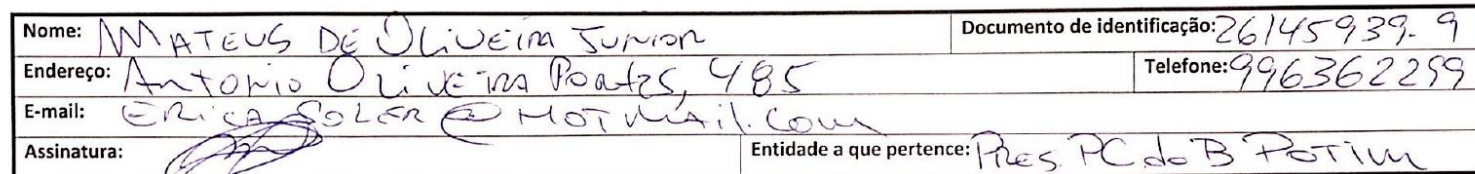 Nome: MATEUS DE OLIVEIRA JUNIOR Documento de identificação: 26145939-9
Endereço: ANTONIO OLIVEIRA PORTES, 485 Telefone: 996362299
E-mail: ERICA SOLER@HOTMAIL.COM
Assinatura: Entidade a que pertence: PRES. PC do B POTIM